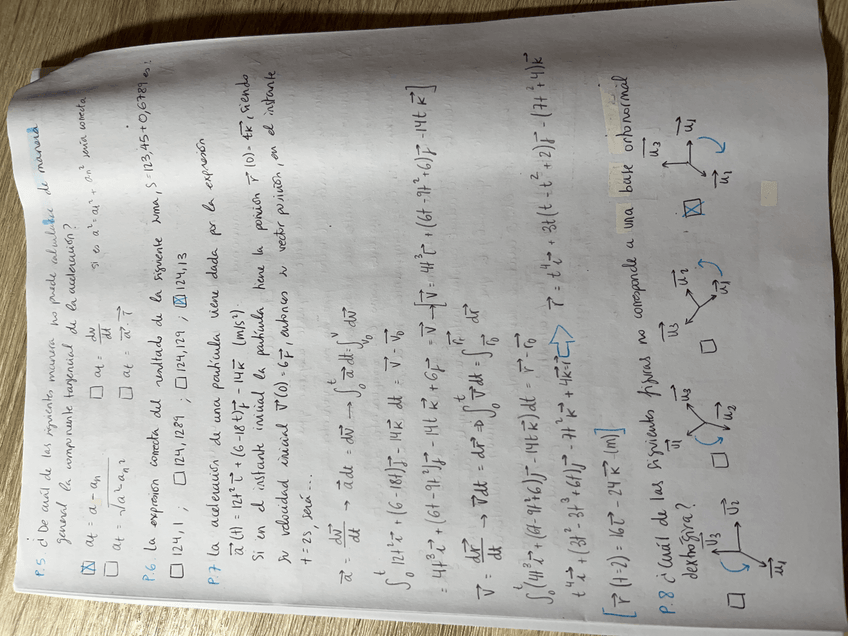 P.5 ¿De cuál de las siguientes manera no puede calcularse de manera
general la componente tangencial de la aceleración?
☒ at = a - an   ☐ at = dv/dt   si es a² = at² + an² sería correcta
☐ at = √a² - an²   ☐ at = a⃗ · τ⃗
P.6 La expresión correcta del resultado de la siguiente suma, S = 123,45 + 0,6789 es:
☐ 124,1 ; ☐ 124,1289 ; ☐ 124,129 ; ☒ 124,13
P.7 La aceleración de una partícula viene dada por la expresión
a⃗(t) = 12t² i⃗ + (6 - 18t) j⃗ - 14 k⃗ (m/s²).
Si en el instante inicial la partícula tiene la posición r⃗(0) = 4k⃗, siendo
su velocidad inicial v⃗(0) = 6j⃗, entonces su vector posición, en el instante
t = 2s, será...
a⃗ = dv⃗/dt → a⃗ dt = dv⃗ → ∫₀ᵗ a⃗ dt = ∫ᵥ₀ᵛ dv⃗
∫₀ᵗ 12t² i⃗ + (6 - 18t) j⃗ - 14 k⃗ dt = v⃗ - v⃗₀
= 4t³ i⃗ + (6t - 9t²) j⃗ - 14t k⃗ + 6j⃗ = v⃗ → [v⃗ = 4t³ i⃗ + (6t - 9t² + 6) j⃗ - 14t k⃗]
v⃗ = dr⃗/dt → v⃗ dt = dr⃗ → ∫₀ᵗ v⃗ dt = ∫ dr⃗
∫₀ᵗ (4t³ i⃗ + (6t - 9t² + 6) j⃗ - 14t k⃗) dt = r⃗ - r⃗₀
t⁴ i⃗ + (3t² - 3t³ + 6t) j⃗ - 7t² k⃗ + 4k = r⃗ ⇒ r⃗ = t⁴ i⃗ + 3t (t - t² + 2) j⃗ - (7t² + 4) k⃗
[r⃗ (t=2) = 16 i⃗ - 24 k⃗ (m)]
P.8 ¿Cuál de las siguientes figuras no corresponde a una base ortonormal
dextrógira?
☐ u⃗₃ u⃗₂ u⃗₁   ☐ u⃗₁ u⃗₃ u⃗₂   ☐ u⃗₃ u⃗₂ u⃗₁   ☒ u⃗₃ u⃗₁ u⃗₁